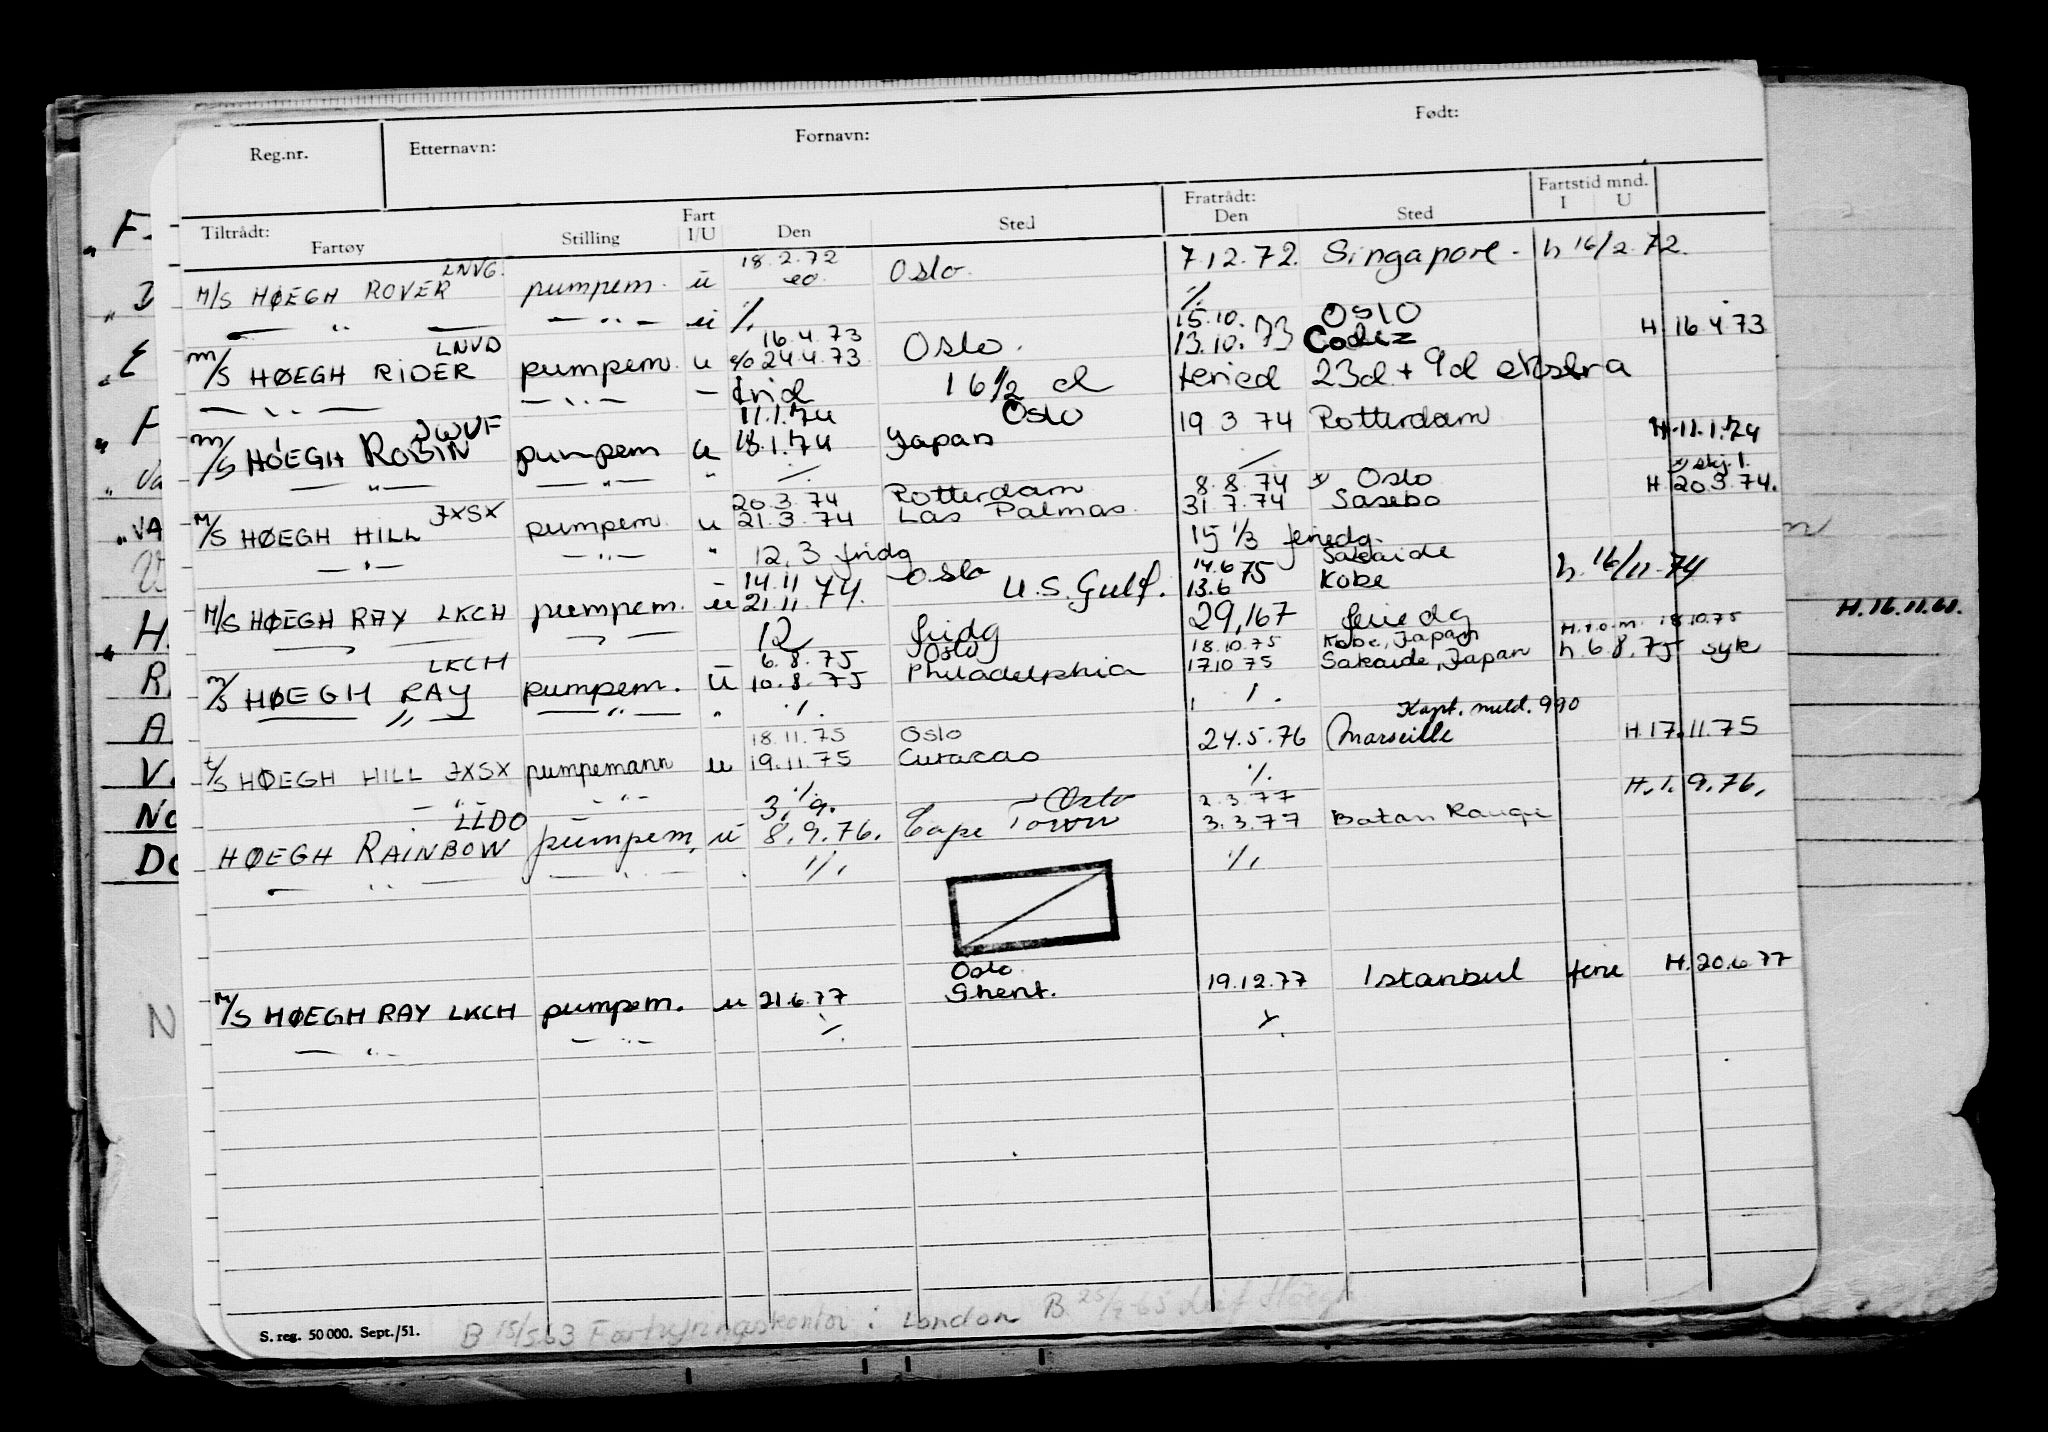 Reg.nr. Etternavn: Fornavn: Født:
Tiltrådt: Fartøy Stilling Fart I/U Den Sted Fratrådt: Den Sted Fartstid mnd. I U
LNVG. 18.2.72
M/S HØEGH ROVER pumpem. u Oslo. 7.12.72. Singapore - h 16/2.72.
— " — — " — u ./. ./.
16.4.73 15.10. OSLO
LNVD
m/S HØEGH RIDER pumpem. u 24.4.73 Oslo. 13.10.73 H 16.4.73
— " — — " — — frid 16 1/2 d feried 23d + 9d ekstra
11.1.74 Oslo
JWVF
m/S HØEGH ROBIN pumpem u 13.1.74 Japan 19 3 74 Rotterdam H.11.1.74
— " — — " — " ./. ./.
20.3.74 Rotterdam 8.8.74 x Oslo x) skj. 1.
M/S HØEGH HILL JXSX pumpem. u 21.3.74 Las Palmas. 31.7.74 Sasebo H 20.3.74.
— " — — " — " 12,3 fridg 15 1/3 feriedg.
14.11 Oslo 14.6 Sakaide
M/S HØEGH RAY LKCH pumpem. u 21.11.74. U.S. Gulf. 13.6 75 Kobe h. 16/11-74
12 fridg 29,167 feriedg
6.8.75 Oslo 18.10.75 Kobe, Japan H.t.o.m. 18.10.75
LKCH
m/S HØEGH RAY pumpem. u 10.8.75 Philadelphia 17.10 75 Sakaide, Japan h.6.8.75 syk
— " — — " — " ./. ./.
18.11.75 Oslo Kapt. meld. 990
t/S HØEGH HILL JXSX pumpemann u 19.11.75 Curacao 24.5.76 Marseille H.17.11.75
— " — — " — ./. ./.
3.9. Oslo 2.3.77 H.1.9.76.
LLDO
HØEGH RAINBOW pumpem, u 8.9.76. Cape Town 3.3.77 Batan Rouge
— " — — " — ./. ./.
Oslo
M/S HØEGH RAY LKCH pumpem. u 21.6.77 Ghent. 19.12.77 Istanbul ferie H.20.6.77
— " — — " — ./. ./.
S. reg. 50 000. Sept./51.
B 15/5.63 Forhyringskontor i London B 25/2-65 Leif Höegh
H.16.11.61.
F-
E
F
Va
"VA
H.
R.
A
V.
No
Do
N